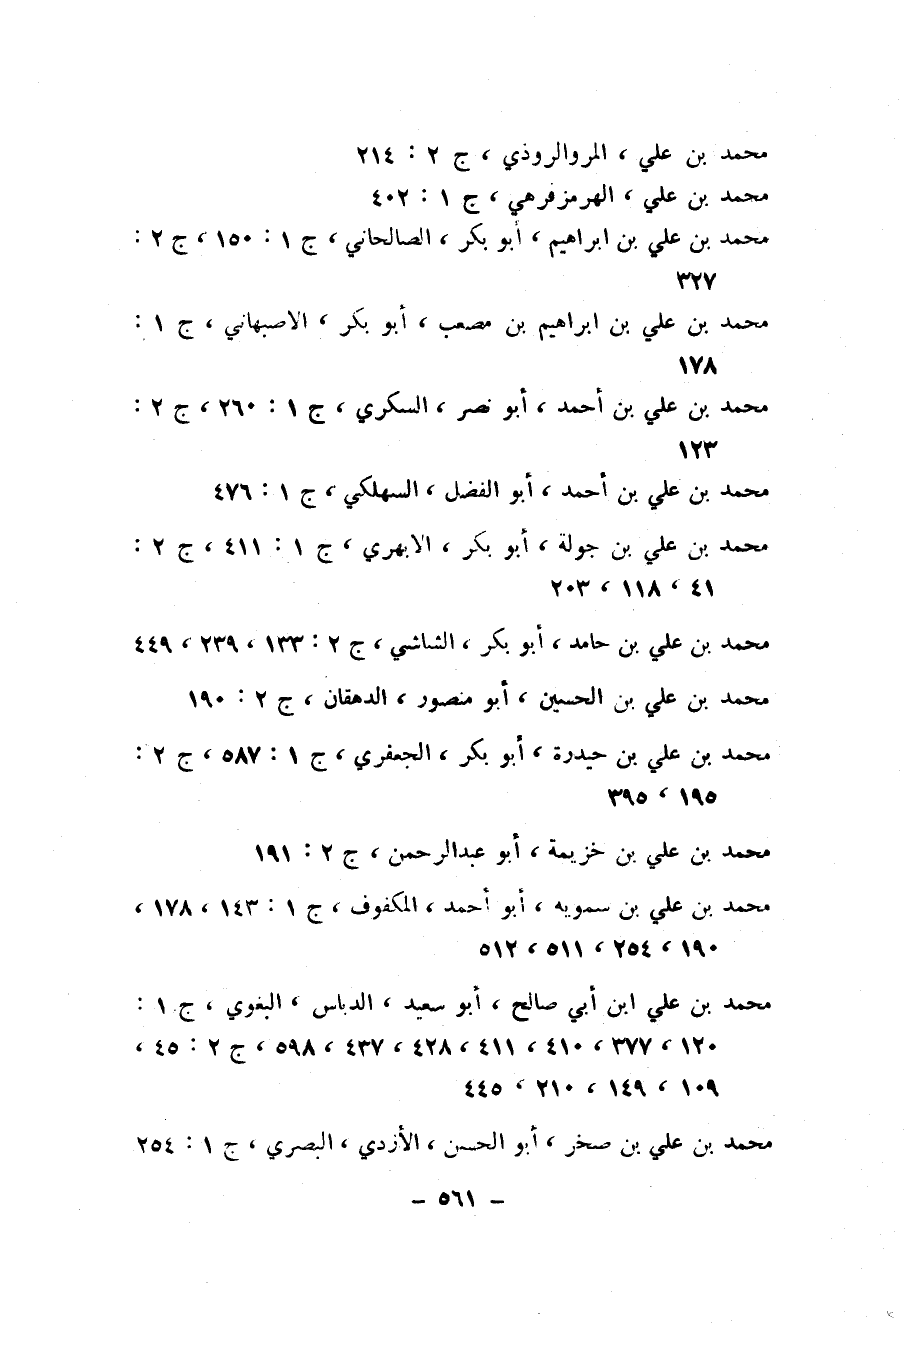 محمد بن علي ، المروالروذي ، ج ٢ : ٢١٤
محمد بن علي ، الهرمزفرهي ، ج ١ : ٤٠٢
محمد بن علي بن ابراهيم ، أبو بكر ، الصالحاني ، ج ١ : ١٥٠ ، ج ٢ :
٣٢٧
محمد بن علي بن ابراهيم بن مصعب ، أبو بكر ، الاصبهاني ، ج ١ :
١٧٨
محمد بن علي بن أحمد ، أبو نصر ، السكري ، ج ١ : ٢٦٠ ، ج ٢ :
١٢٣
محمد بن علي بن أحمد ، أبو الفضل ، السهلكي ، ج ١ : ٤٧٦
محمد بن علي بن جولة ، أبو بكر ، الابهري ، ج ١ : ٤١١ ، ج ٢ :
٤١ ، ١١٨ ، ٢٠٣
محمد بن علي بن حامد ، أبو بكر ، الشاشي ، ج ٢ : ١٣٣ ، ٢٣٩ ، ٤٤٩
محمد بن علي بن الحسين ، أبو منصور ، الدهقان ، ج ٢ : ١٩٠
محمد بن علي بن حيدرة ، أبو بكر ، الجعفري ، ج ١ : ٥٨٧ ، ج ٢ :
١٩٥ ، ٣٩٥
محمد بن علي بن خزيمة ، أبو عبدالرحمن ، ج ٢ : ١٩١
محمد بن علي بن سمويه ، أبو أحمد ، المكفوف ، ج ١ : ١٤٣ ، ١٧٨ ،
١٩٠ ، ٢٥٤ ، ٥١١ ، ٥١٢
محمد بن علي ابن أبي صالح ، أبو سعيد ، الدباس ، البغوي ، ج ١ :
١٢٠ ، ٣٧٧ ، ٤١٠ ، ٤١١ ، ٤٢٨ ، ٤٣٧ ، ٥٩٨ ، ج ٢ : ٤٥ ،
١٠٩ ، ١٤٩ ، ٢١٠ ، ٤٤٥
محمد بن علي بن صخر ، أبو الحسن ، الأزدي ، البصري ، ج ١ : ٢٥٤
– ٥٦١ –